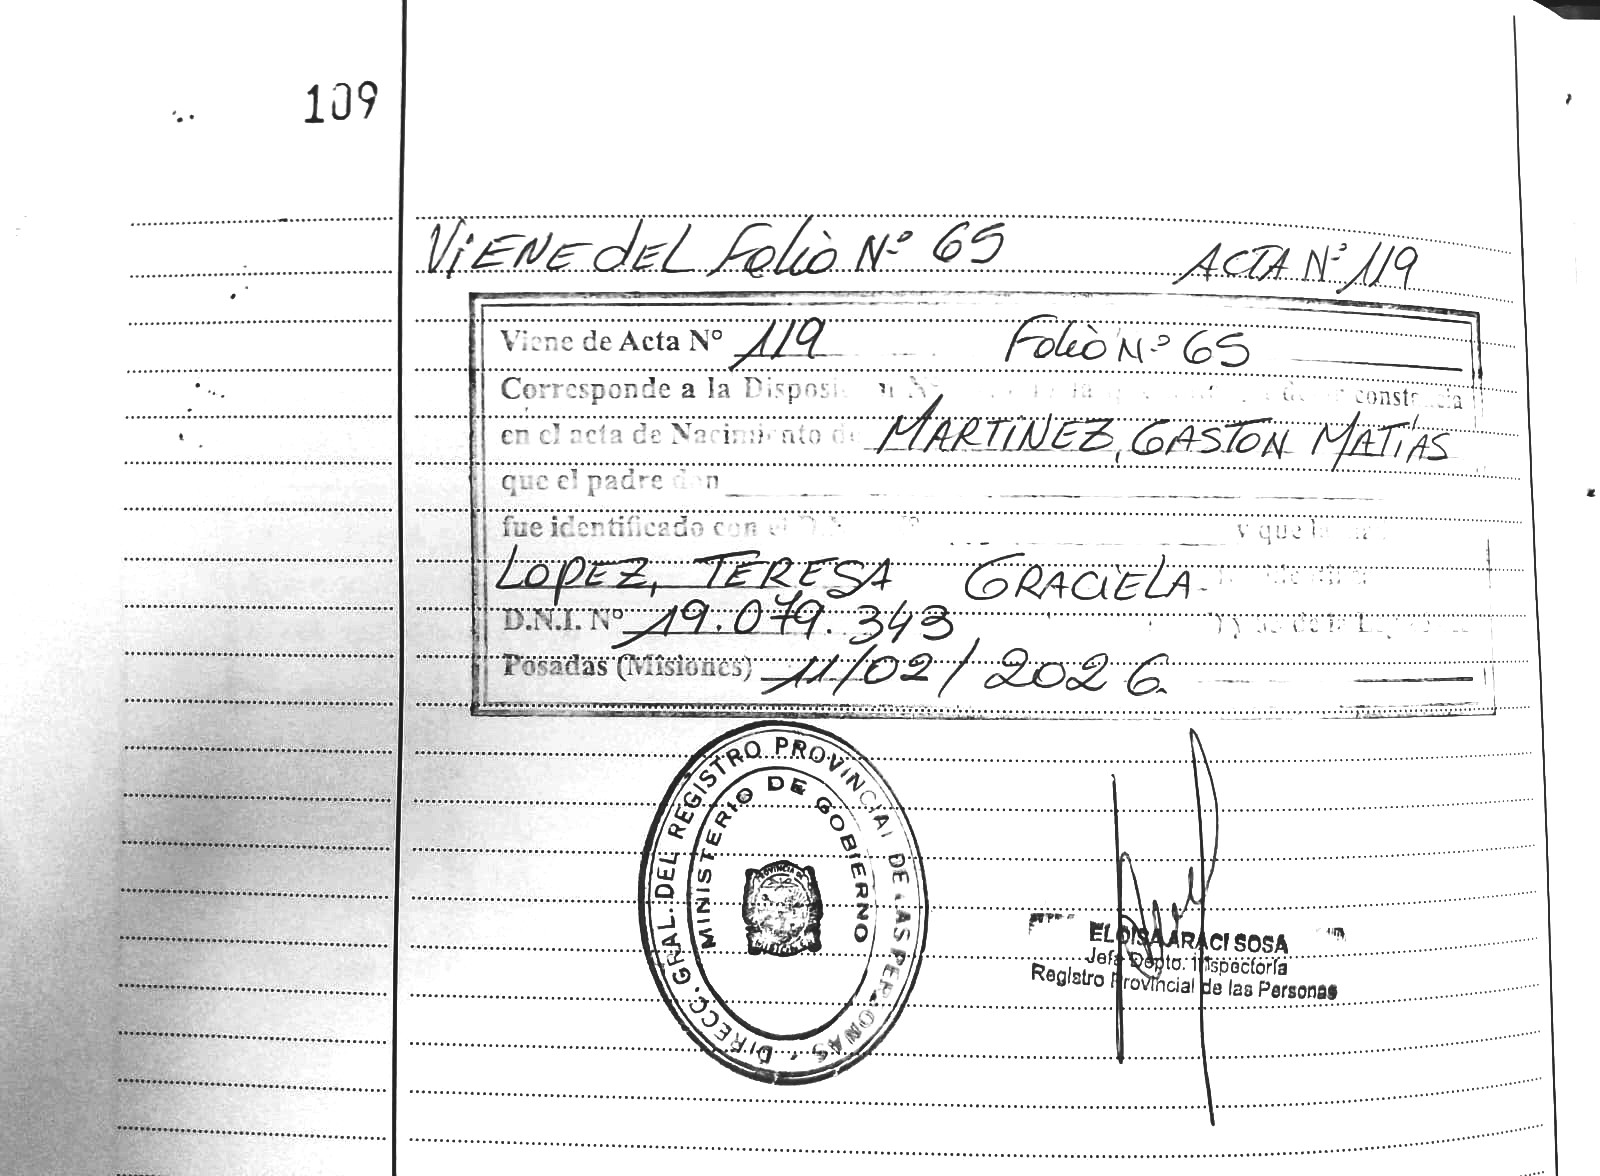 109
ViENE dEL Folio Nº 65 ACTA Nº 119
Viene de Acta Nº 119 Folio Nº 65
Corresponde a la
en el acta de Nacimiento de MARTINEZ, GASTON MATÍAS
que el padre don
fue identificado con el y que la
LOPEZ, TERESA GRACIELA.
D.N.I. Nº 19.079.343
Posadas (Misiones) 11/02/2026.
DIRECC. GRAL. DEL REGISTRO PROVINCIAL DE LAS PERSONAS
MINISTERIO DE GOBIERNO
ELOISA ARACI SOSA
Jefa Depto. Inspectoría
Registro Provincial de las Personas